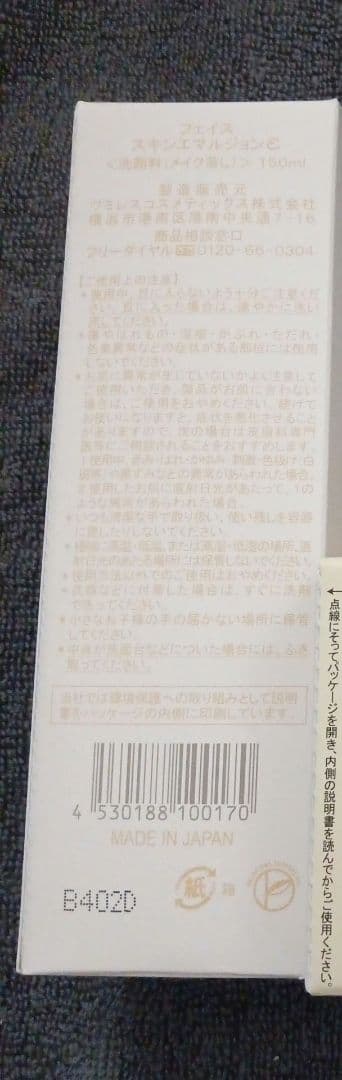 フェイス
スキンエマルジョンE
<洗顔料(メイク落し)> 150ml
製造販売元
ウミレスコスメティックス株式会社
横浜市港南区港南中央通7-16
商品相談窓口
フリーダイヤル 0120-66-0304
【ご使用上の注意】
●使用中、目に入らないよう十分ご注意ください。
目に入った場合は、速やかに洗い
流してください。
●傷やはれもの・湿疹・かぶれ・ただれ・
色素異常などの症状がある部位には使用
しないでください。
●お肌に異常が生じていないかよく注意して
ご使用いただき、製品がお肌に合わない
場合は、ご使用をおやめください。続けて
お使いになりますと、症状を悪化させること
がありますので、次の場合は皮膚科専門
医等にご相談されることをおすすめします。
1使用中、赤み・はれ・かゆみ・刺激・色抜け(白
斑等)や黒ずみなどの異常があらわれた場合。
2使用したお肌に直射日光があたって、1の
ような異常があらわれた場合。
●いつも清潔な手で取り扱い、使い残しを容器
に戻したりしないでください。
●極端に高温・低温、または高湿・低湿の場所、直
射日光のあたる場所には保管しないでください。
●使用方法以外でのご使用はおやめください。
●衣類などに付着した場合は、すぐに洗剤
で洗ってください。
●小さなお子様の手の届かない場所に保管
してください。
●中身が洗面台などについた場合には、ふき
取ってください。
当社では環境保護への取り組みとして説明
書をパッケージの内側に印刷しています。
4 530188 100170
MADE IN JAPAN
紙 箱
B402D
←点線にそってパッケージを開き、内側の説明書を読んでからご使用ください。